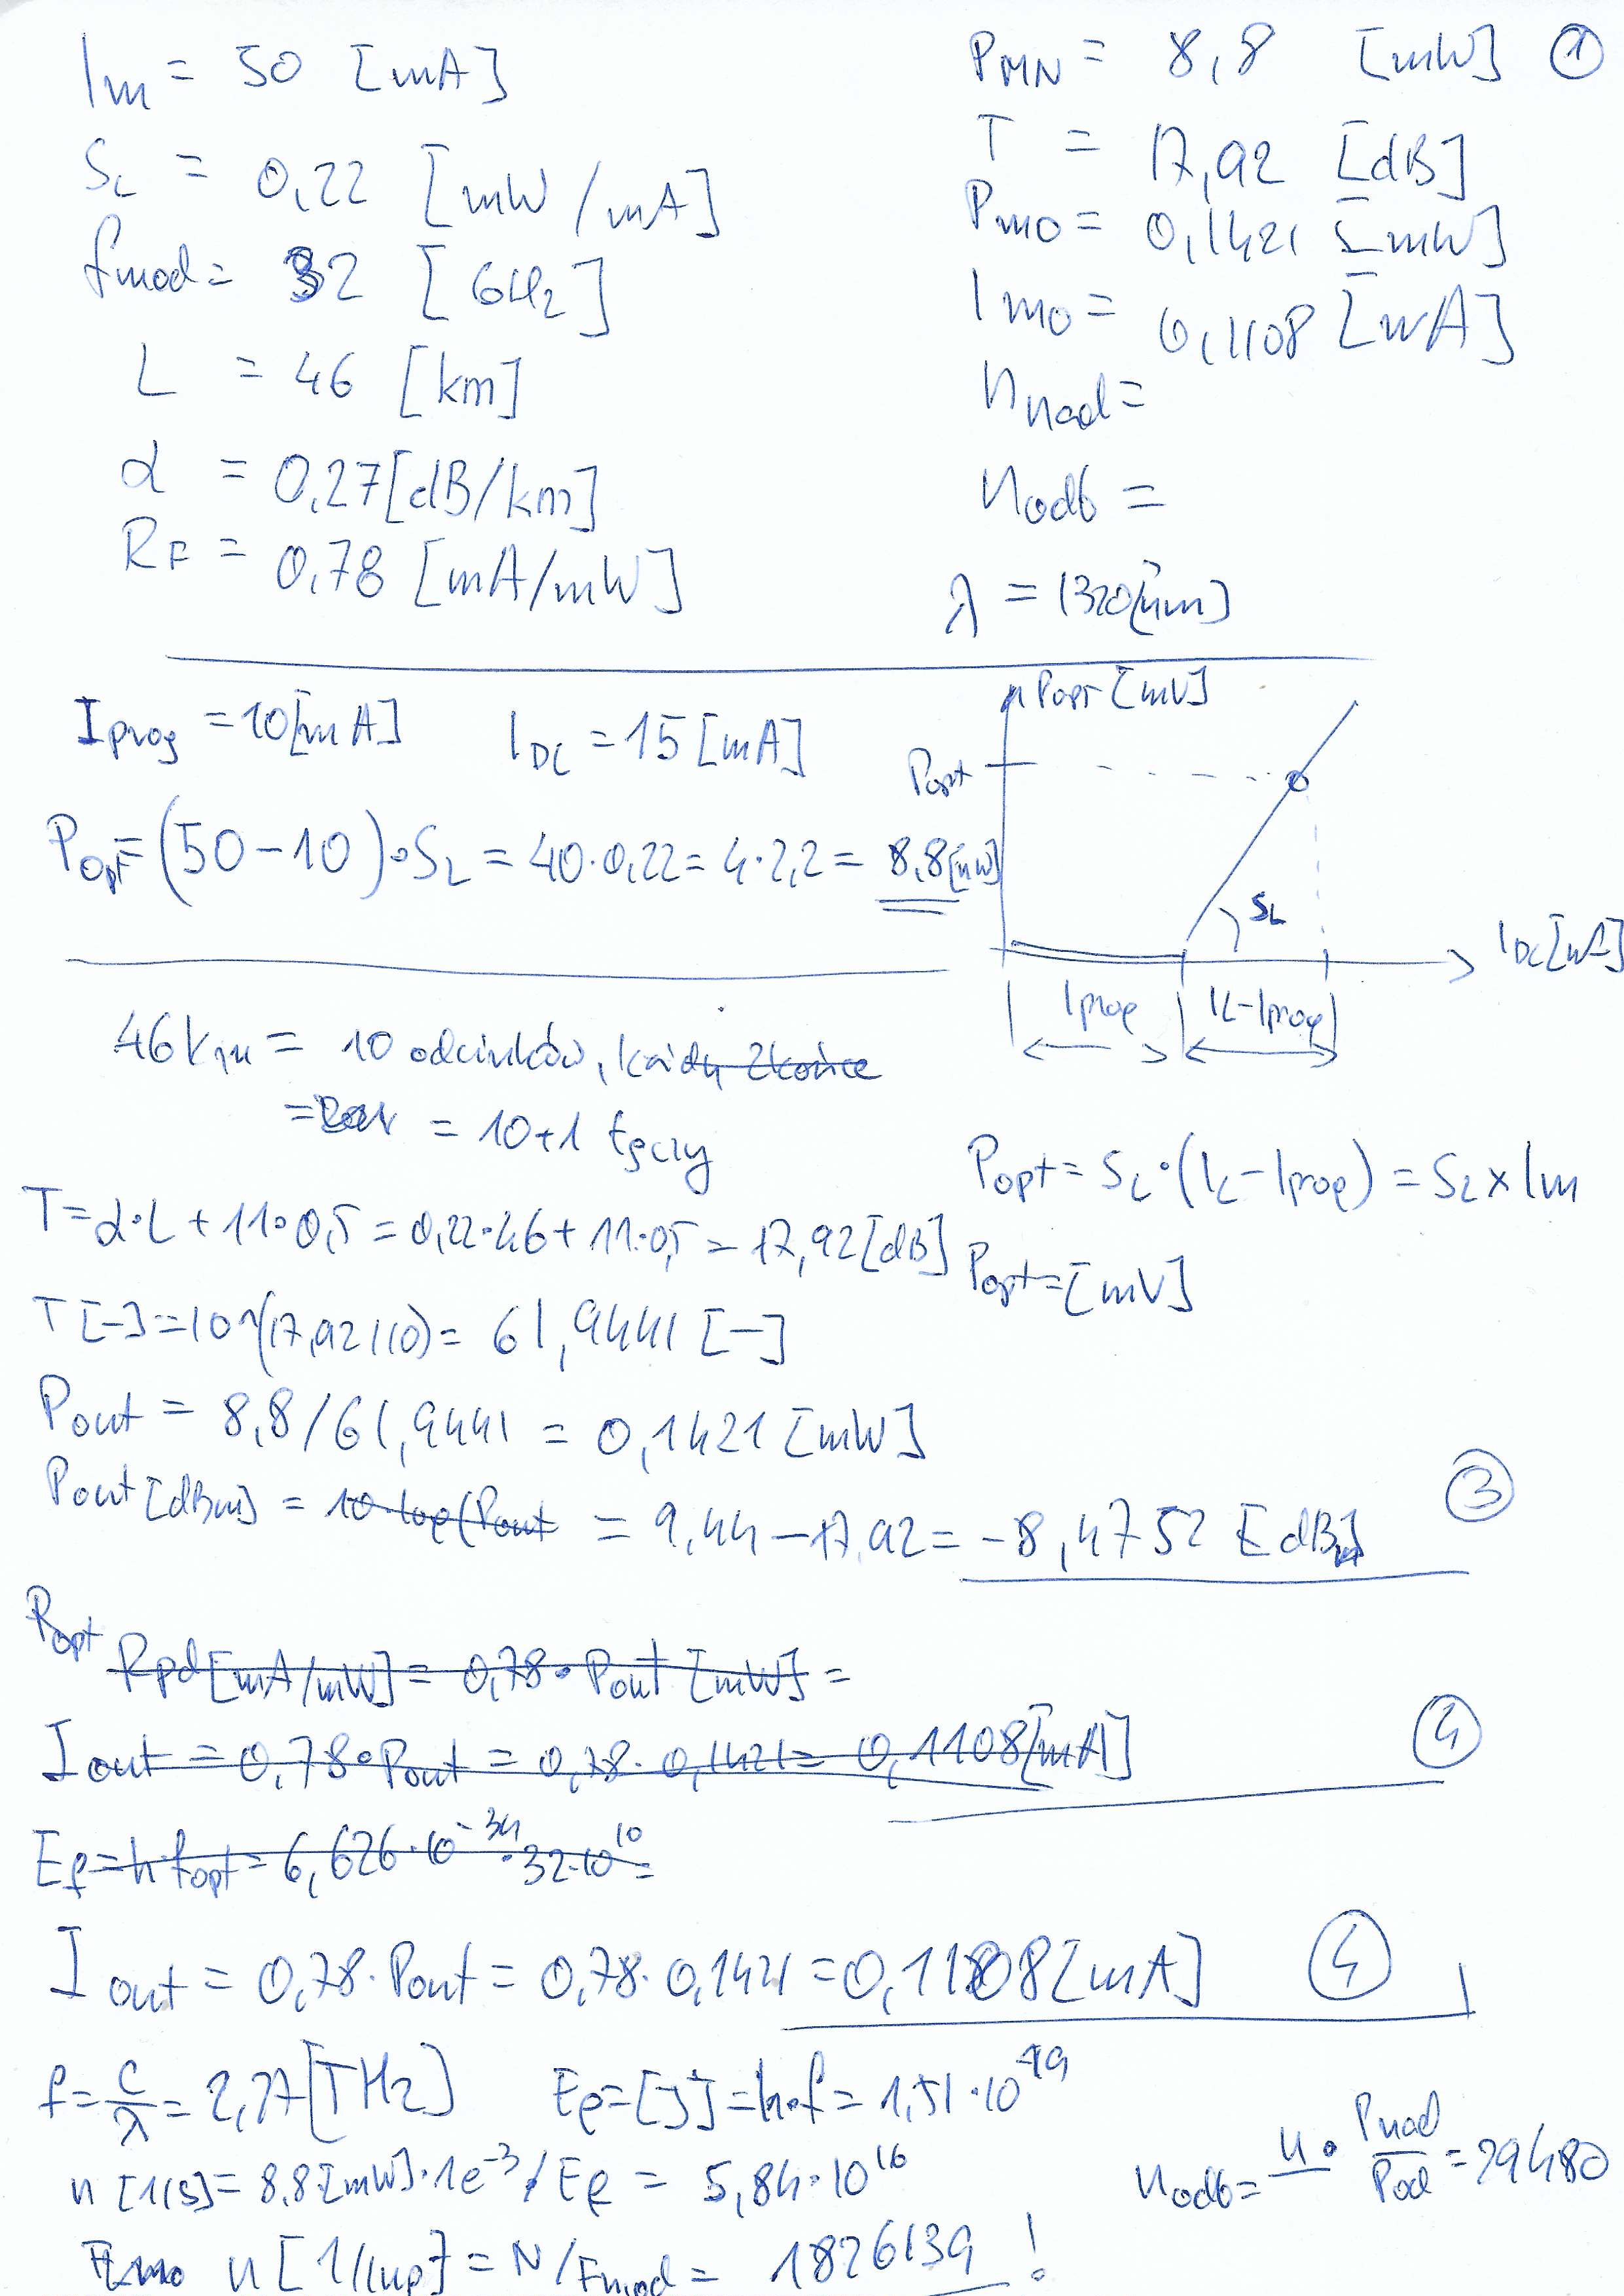 Im = 50 [mA]
SL = 0,22 [mW/mA]
fmod = 32 [GHz]
L = 46 [km]
α = 0,27 [dB/km]
RF = 0,78 [mA/mW]
PMN = 8,8 [mW] ①
T = 17,92 [dB]
Pmo = 0,1421 [mW]
Imo = 0,1108 [mA]
nnad =
nodb =
λ = 1320 [nm]
Iprog = 10 [mA] IDC = 15 [mA]
Popt = (50-10)·SL = 40·0,22 = 4·2,2 = 8,8 [mW]
Popt [mV]
Popt
SL
IDC [mA]
Iprog IL-Iprog
46km = 10 odcinków, każdy 2 końce
= = 10+1 łączy
Popt = SL·(IL-Iprog) = SL x Im
Popt = [mV]
T = α·L + 11·0,5 = 0,22·46 + 11·0,5 = 17,92 [dB]
T [-] = 10^(17,92/10) = 61,9441 [-]
Pout = 8,8/61,9441 = 0,1421 [mW]
Pout [dBm] = 10·log(Pout = 9,44 - 17,92 = -8,4752 [dBm] ③
Popt
Rpd [mA/mW] = 0,78·Pout [mW] =
Iout = 0,78·Pout = 0,78·0,1421 = 0,1108 [mA] ④
Ef = h·fopt = 6,626·10⁻³⁴·32·10¹⁰ =
Iout = 0,78·Pout = 0,78·0,1421 = 0,1108 [mA] ④
f = c/λ = 2,27 [THz] Ef = [J] = h·f = 1,51·10⁻¹⁹
n [1/s] = 8,8 [mW]·1e⁻³/Ef = 5,84·10¹⁶
nodb = n · Pnad/Pod = 29480
n [1/imp] = N/Fmod = 1826139 !